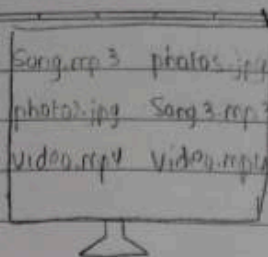 Song.mp3 photos.jpg
photos.jpg Song3.mp3
video.mp4 video.mp4